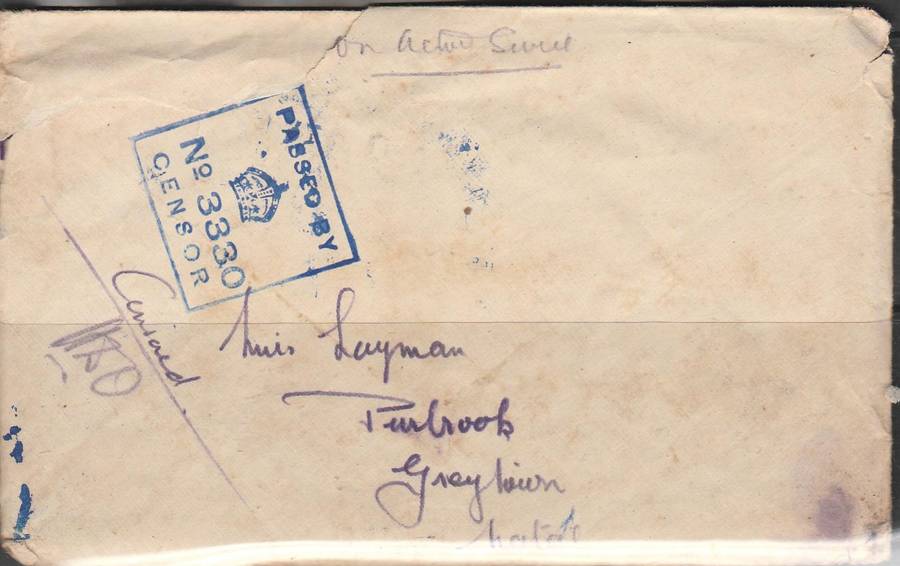 On Active Service
PASSED BY
No 3330
CENSOR
Censored
Miss Layman
Purbrook
Greytown
Natal